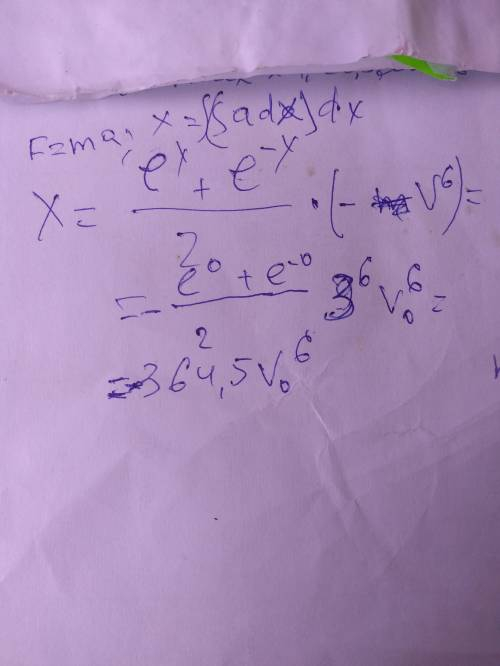 F=ma; x=∫(∫adx)dx
X = (e^x + e^-x)/2 · (- V^6) =
= - (e^0 + e^-0)/2 3^6 V₀^6 =
= -364,5 V₀^6